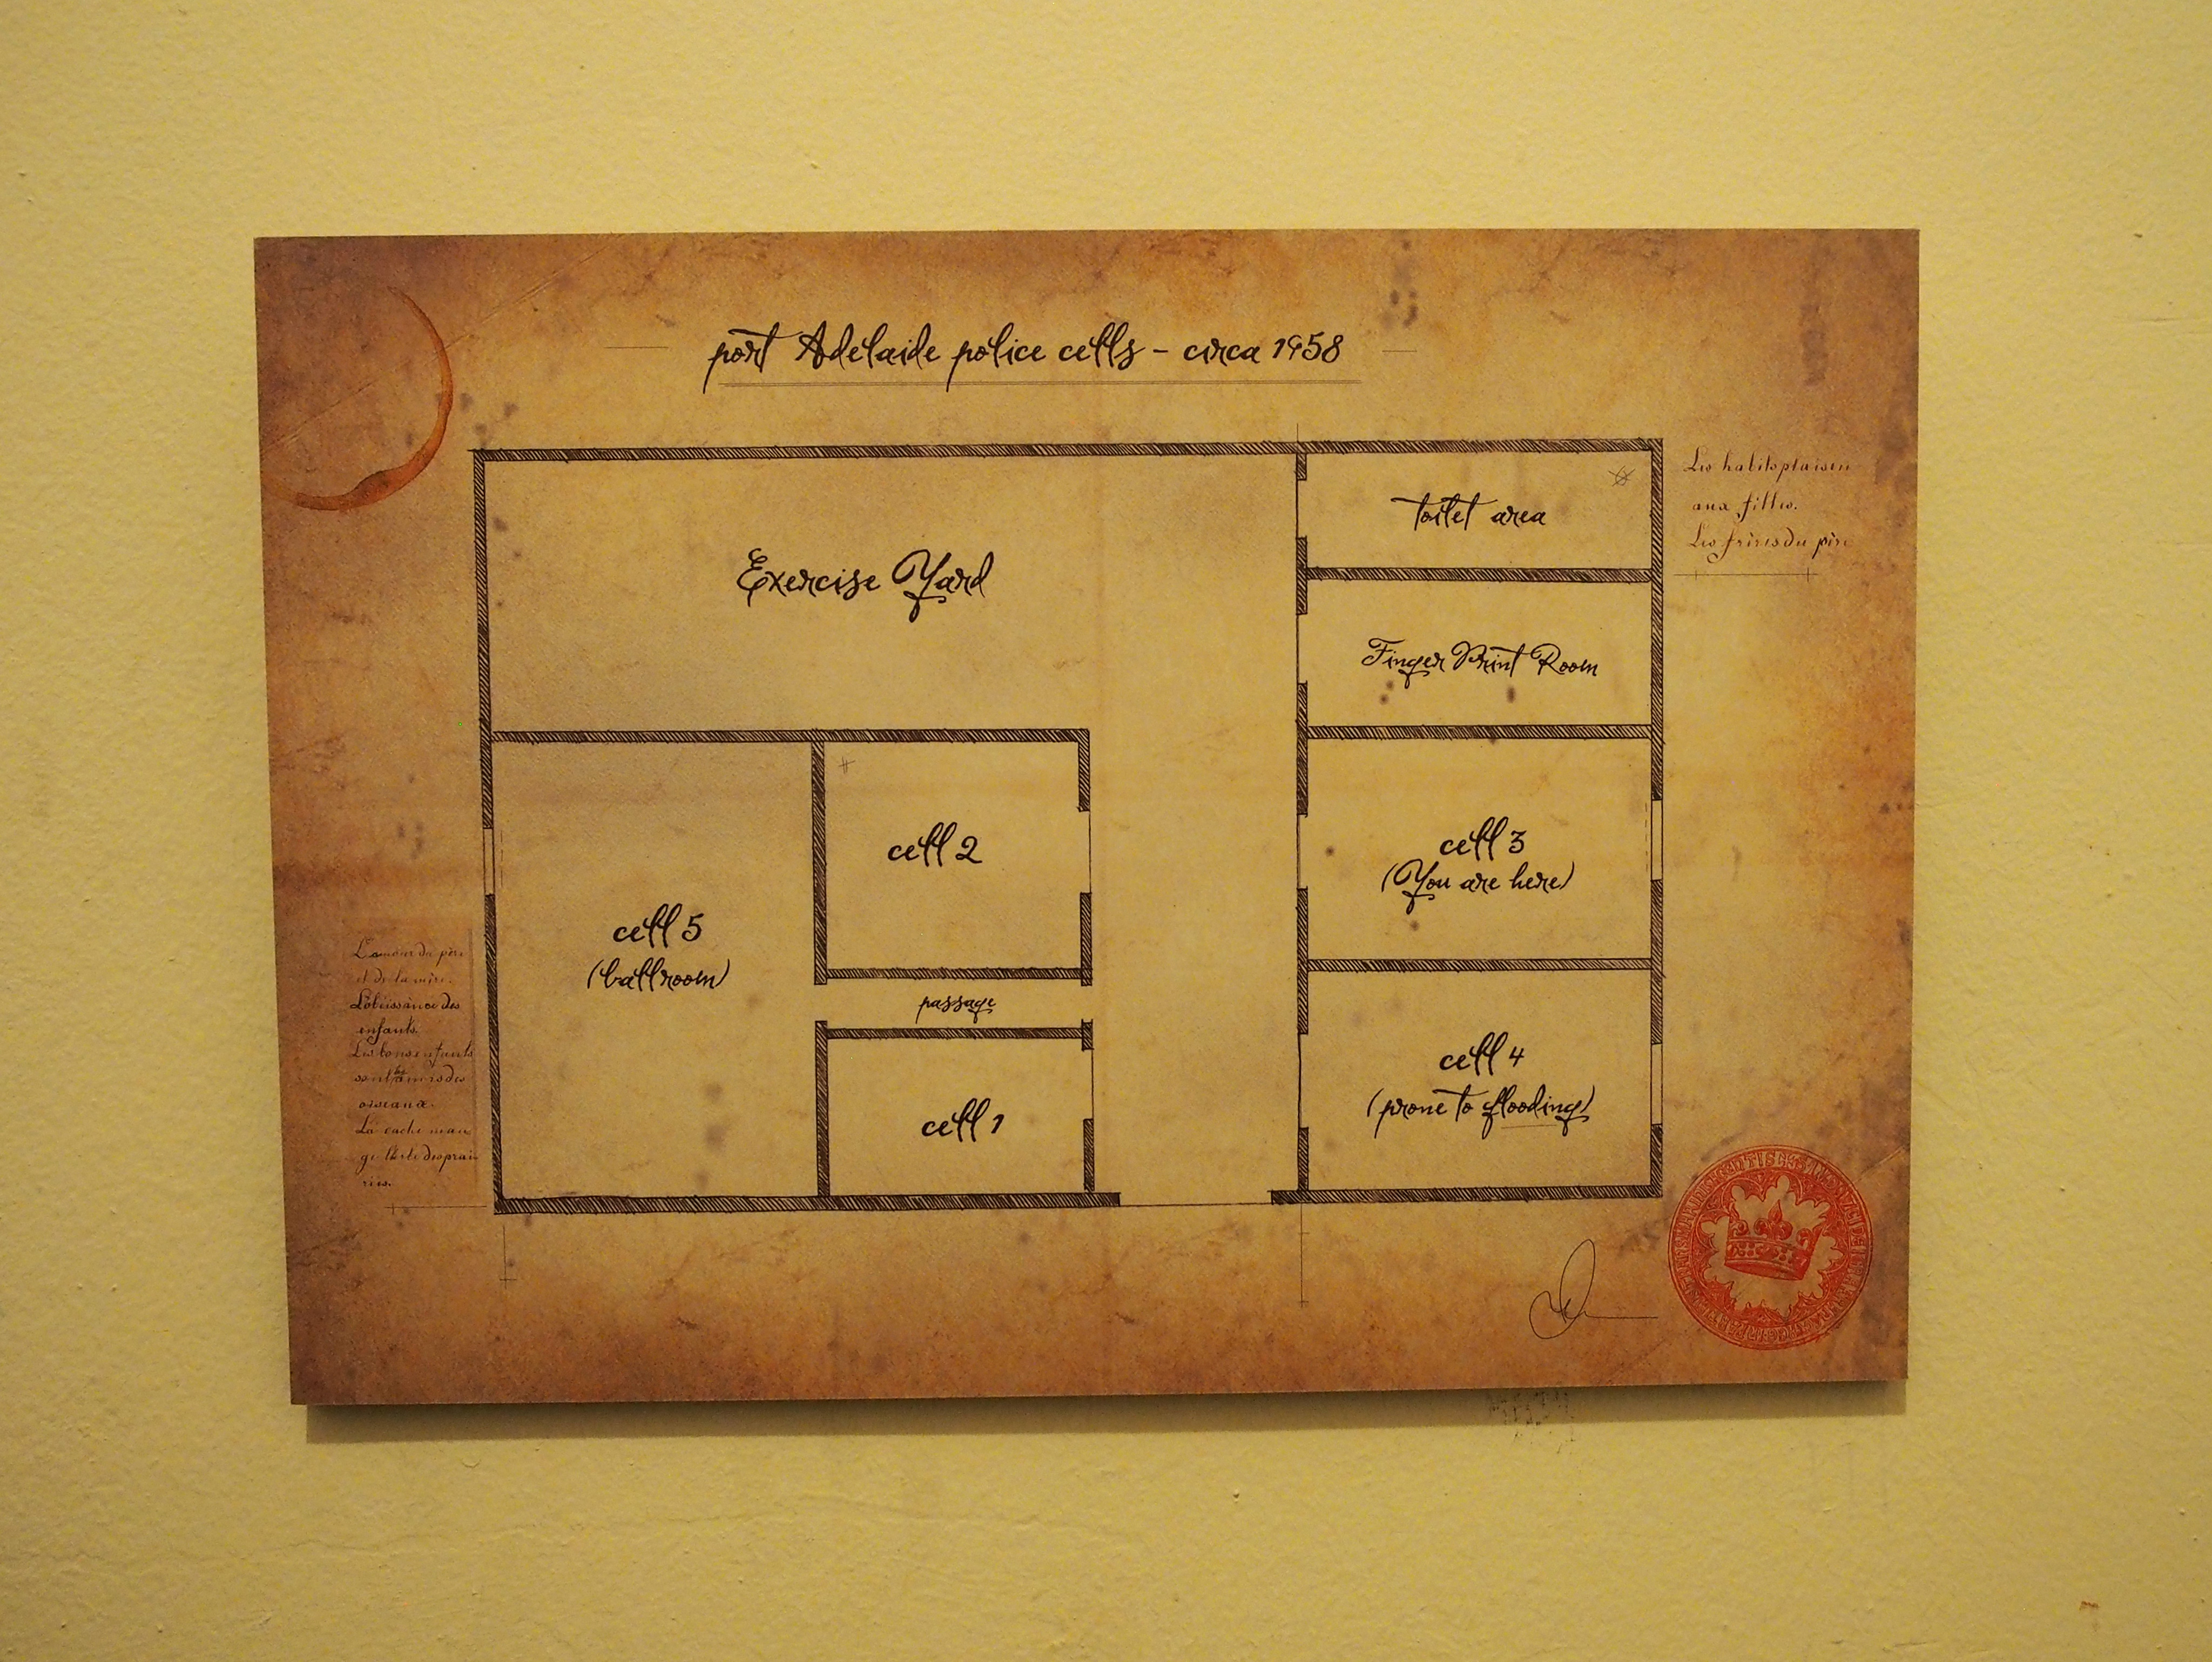 port Adelaide police cells - circa 1958
Exercise Yard
toilet area
Finger Print Room
cell 2
cell 3
(You are here)
cell 5
(ballroom)
passage
cell 1
cell 4
(prone to flooding)
Les habits plaisen
aux filles.
Les frères du père
L'amour du père
et de la mère.
L'obéissance des
enfants.
Les bons enfants
sont
des
oiseaux.
La vache man
ge l'herbe des prai
ries.